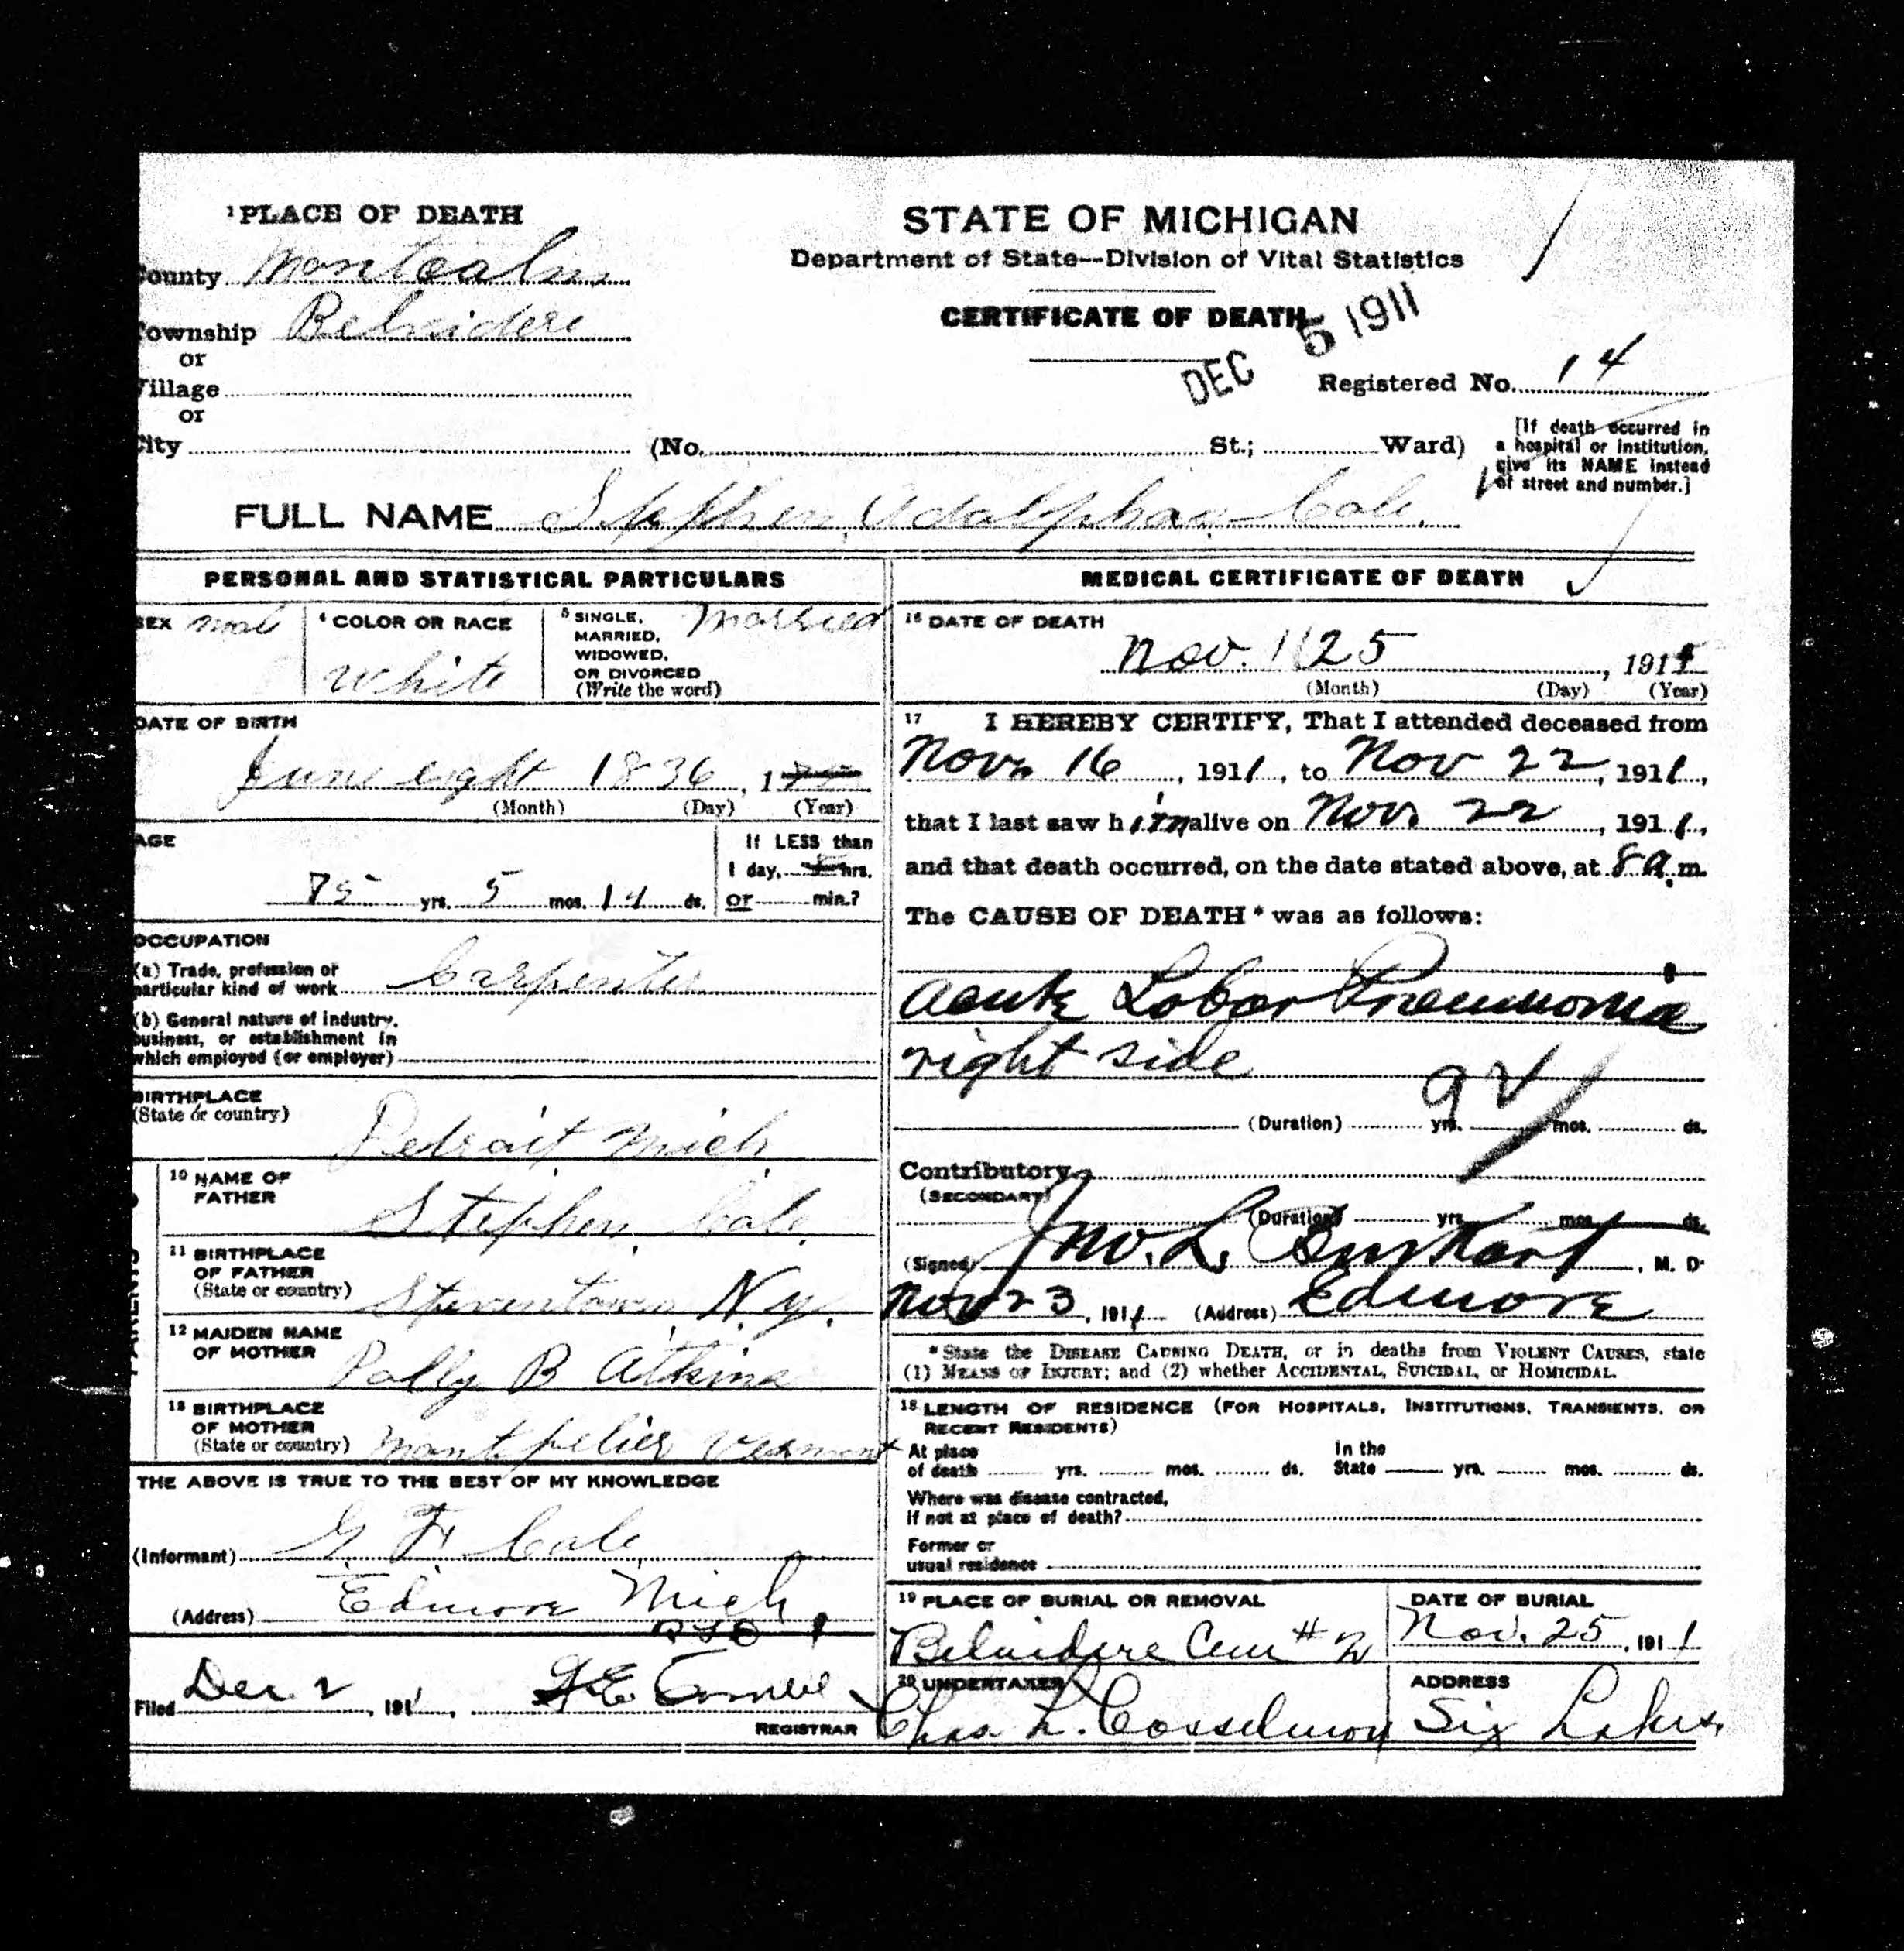 1 PLACE OF DEATH
County Montcalm
Township Belvidere
or
Village
or
City (No. St.; Ward)
STATE OF MICHIGAN
Department of State—Division of Vital Statistics
CERTIFICATE OF DEATH
DEC 5 1911
Registered No. 14
[If death occurred in
a hospital or institution,
give its NAME instead
of street and number.]
FULL NAME Stephen Cole
PERSONAL AND STATISTICAL PARTICULARS
SEX Mal
4 COLOR OR RACE
White
5 SINGLE,
MARRIED,
WIDOWED,
OR DIVORCED
(Write the word)
Married
DATE OF BIRTH
June eight 1836, 1
(Month) (Day) (Year)
AGE
75 yrs. 5 mos. 14 ds.
If LESS than
1 day, hrs.
or min.?
OCCUPATION
(a) Trade, profession or
particular kind of work Carpenter
(b) General nature of industry,
business, or establishment in
which employed (or employer)
BIRTHPLACE
(State or country)
Detroit Mich
PARENTS
10 NAME OF
FATHER
Stephen Cole
11 BIRTHPLACE
OF FATHER
(State or country)
N.Y.
12 MAIDEN NAME
OF MOTHER
Polly B Atkins
13 BIRTHPLACE
OF MOTHER
(State or country)
Montpelier Vermont
THE ABOVE IS TRUE TO THE BEST OF MY KNOWLEDGE
(Informant) G. F. Cole
(Address) Edmore Mich.
Filed Dec 2, 1911,
REGISTRAR
MEDICAL CERTIFICATE OF DEATH
16 DATE OF DEATH
Nov. 25, 1911
(Month) (Day) (Year)
17 I HEREBY CERTIFY, That I attended deceased from
Nov. 16, 1911, to Nov 22, 1911,
that I last saw him alive on Nov. 22, 1911,
and that death occurred, on the date stated above, at 8 a.m.
The CAUSE OF DEATH * was as follows:
Acute Lobar Pneumonia
right side
92
(Duration) yrs. mos. ds.
Contributory
(SECONDARY)
(Duration) yrs. mos. ds.
(Signed) Jno. L. Burkart, M. D.
Nov 23, 1911 (Address) Edmore
* State the DISEASE CAUSING DEATH, or in deaths from VIOLENT CAUSES, state
(1) MEANS OF INJURY; and (2) whether ACCIDENTAL, SUICIDAL, or HOMICIDAL.
18 LENGTH OF RESIDENCE (FOR HOSPITALS, INSTITUTIONS, TRANSIENTS, OR
RECENT RESIDENTS)
At place
of death yrs. mos. ds.
In the
State yrs. mos. ds.
Where was disease contracted,
if not at place of death?
Former or
usual residence
19 PLACE OF BURIAL OR REMOVAL
Belvidere Cem #2
DATE OF BURIAL
Nov. 25, 1911
20 UNDERTAKER
Chas L. Cosselmon
ADDRESS
Six Lakes